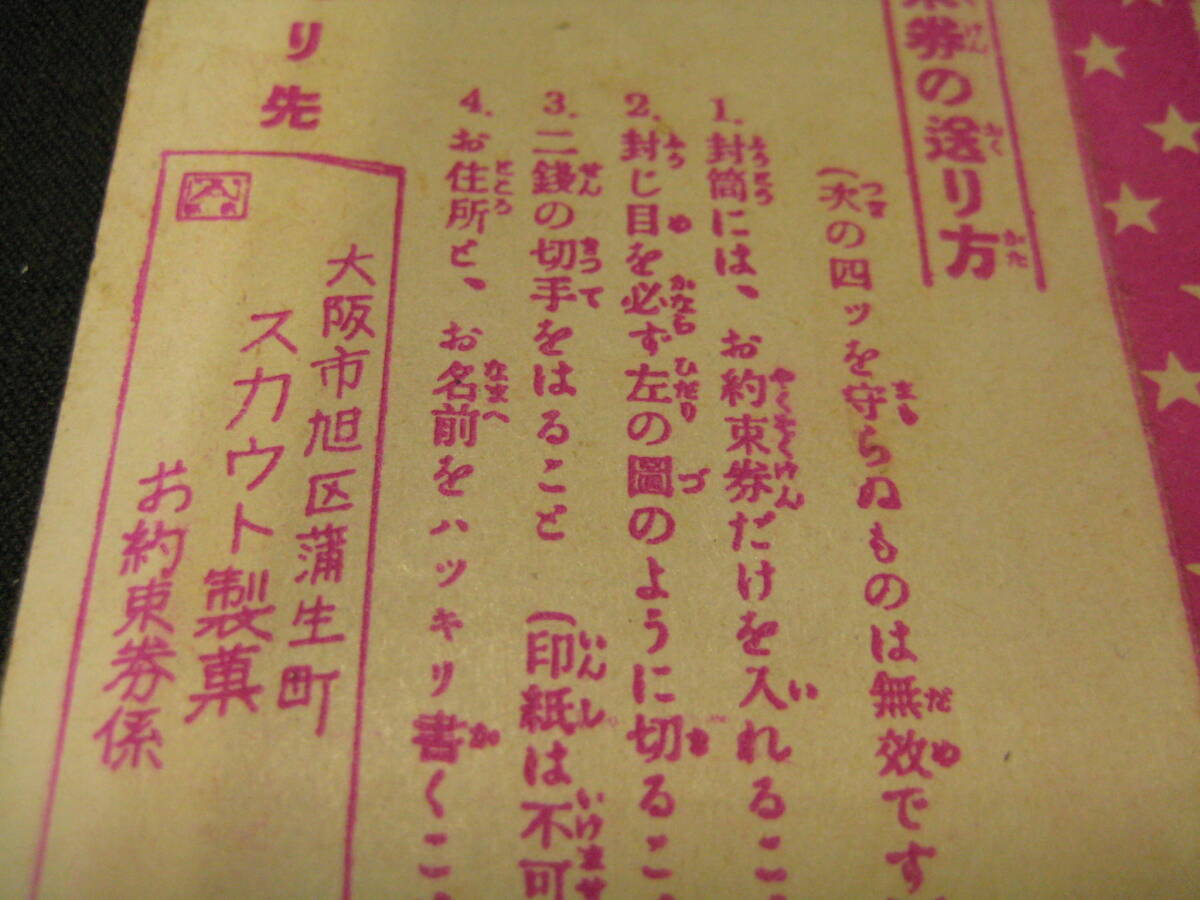 券の送り方
(次の四ッを守らぬものは無效です
1.封筒には、お約束券だけを入れるこ
2.封じ目を必ず左の圖のように切るこ
3.二錢の切手をはること (印紙は不可
4.お住所と、お名前をハッキリ書くこ
り先
大阪市旭区蒲生町
スカウト製菓
お約束券係